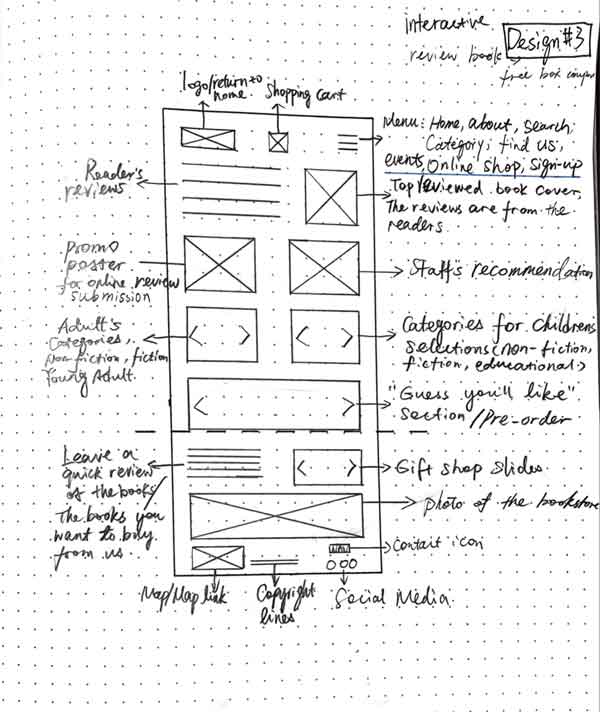 interactive
review book
Design #3
free box coupon
logo/return to
home.
Shopping cart
Menu: Home, about, search,
Category, find us,
events, Online shop, sign-up
Reader's
reviews
Top reviewed book cover,
The reviews are from the
readers.
Promo
poster
for online review
submission
Staff's recommendation
Adult's
Categories,
Non-fiction, fiction
Young Adult.
Categories for Childrens
Selections(non-fiction,
fiction, educational)
"Guess you'll like"
Section/Pre-order
Leave a
quick review
of the books
The books you
want to buy
from us
Gift shop slides.
photo of the bookstore
Contact icon
Map/Map link
Copyright
lines
Social Media.